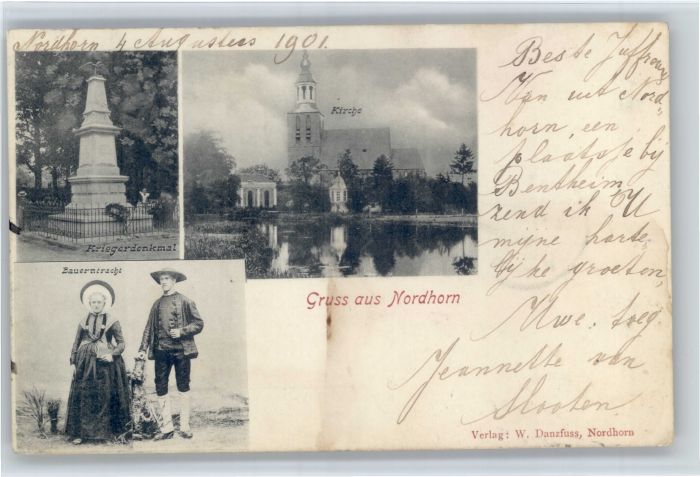 Nordhorn 4 Augustus 1901.
Kirche
Kriegerdenkmal
Bauerntracht
Gruss aus Nordhorn
Beste Juffrouw
Van uit Nord-
horn, een
plaatsje bij
Bentheim
zend ik U
mijne harte
lijke groeten,
Uwe. toeg.
Jeannette van
Slooten.
Verlag: W. Danzfuss, Nordhorn